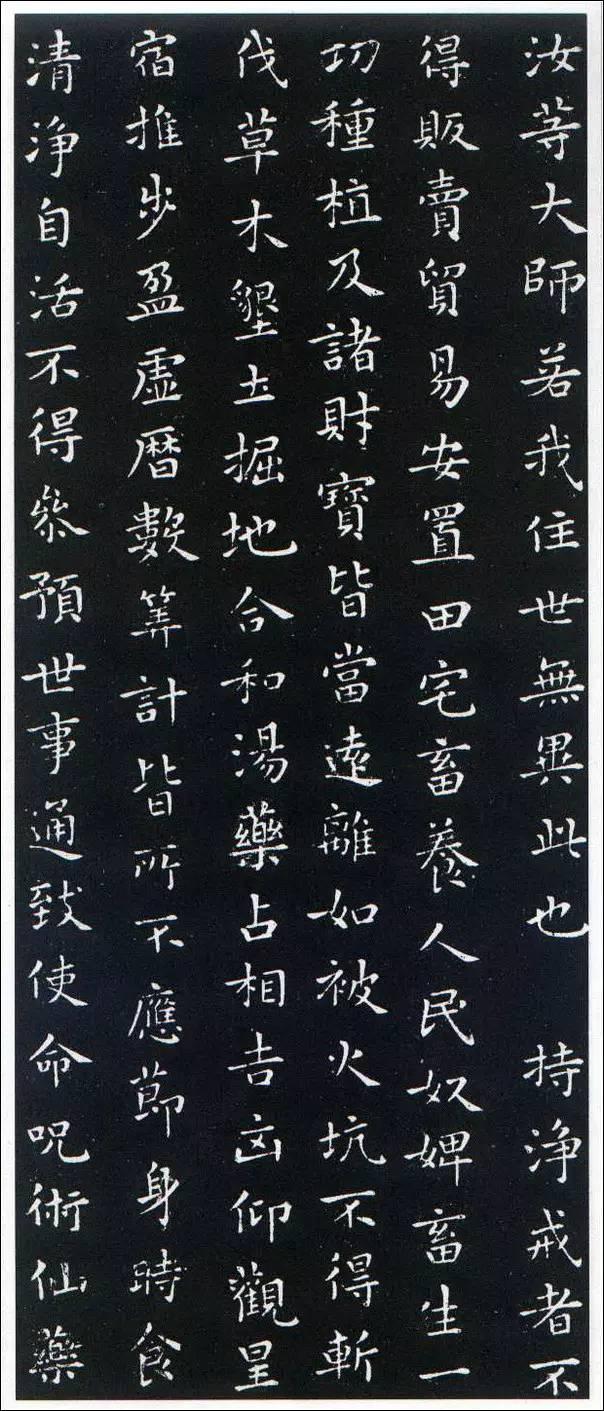 汝等大師若我住世無異此也 持淨戒者不
得販賣貿易安置田宅畜養人民奴婢畜生一
切種植及諸財寶皆當遠離如被火坑不得斬
伐草木墾土掘地合和湯藥占相吉凶仰觀星
宿推步盈虛曆數筭計皆所不應節身時食
清淨自活不得參預世事通致使命呪術仙藥